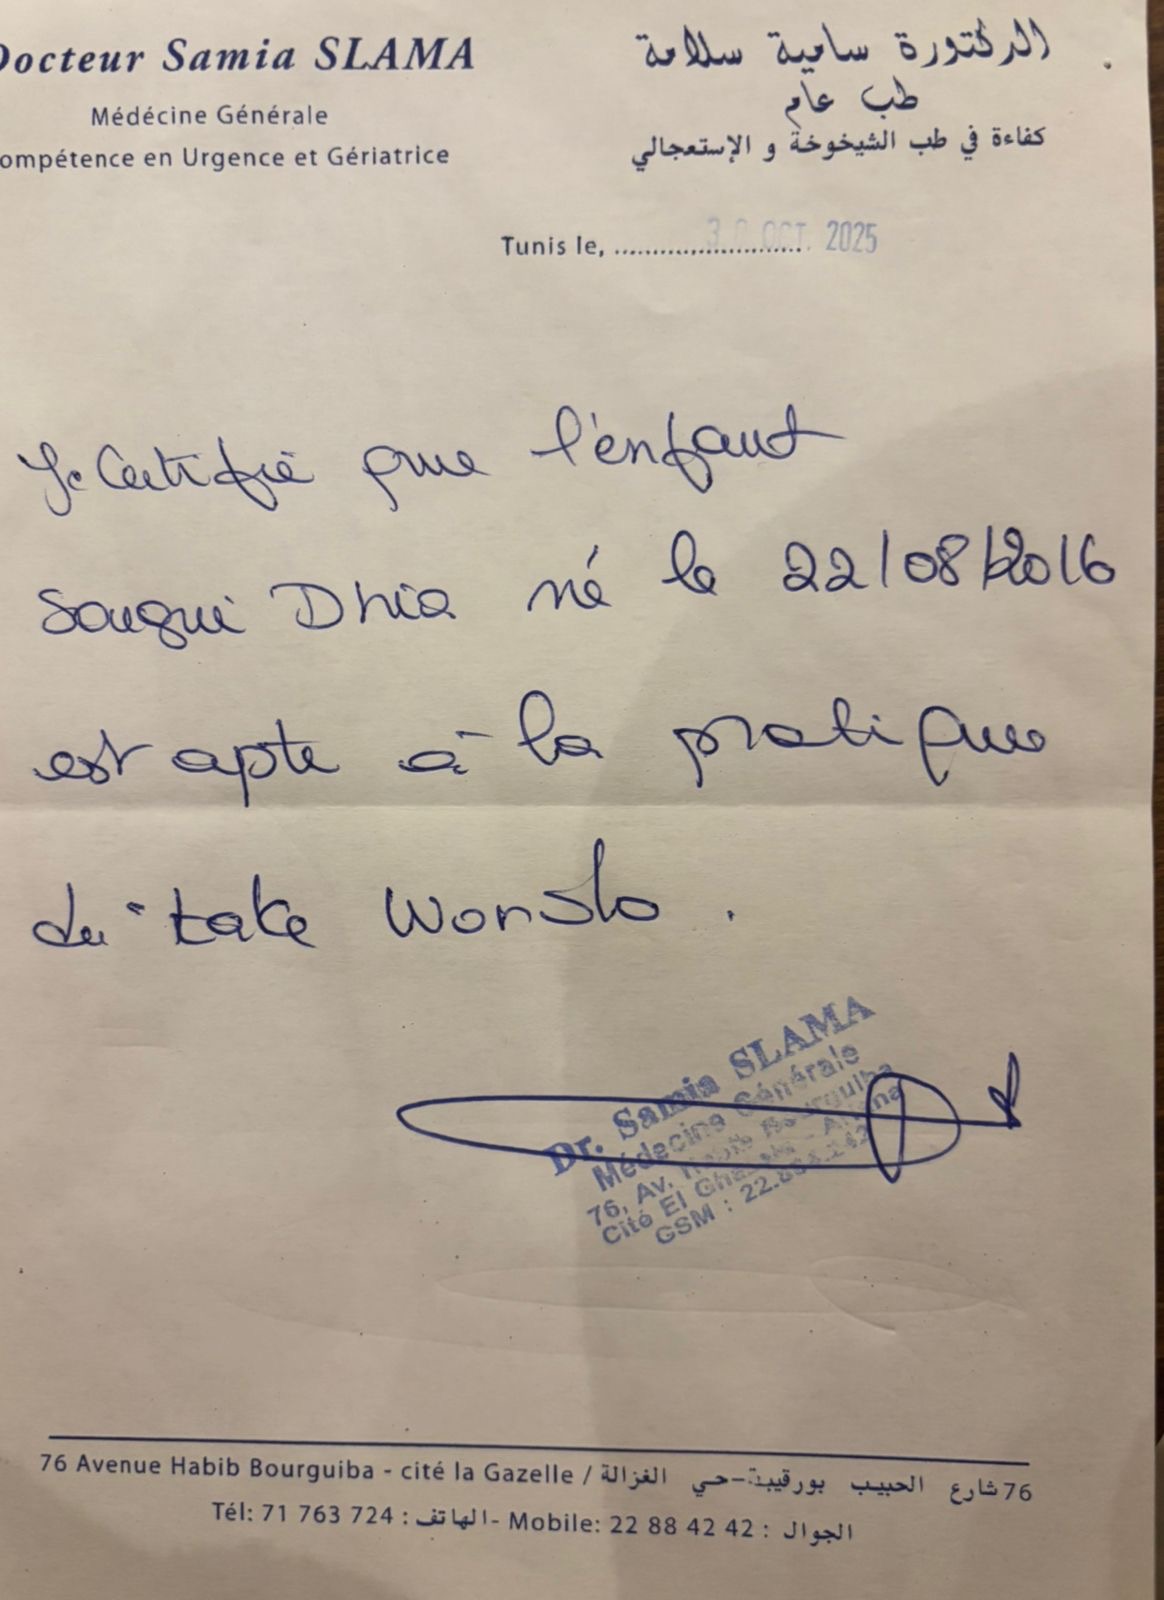 Docteur Samia SLAMA
Médécine Générale
ompétence en Urgence et Gériatrice
الدكتورة سامية سلامة
طب عام
كفاءة في طب الشيخوخة و الإستعجالي
Tunis le, ........................ 30 OCT. 2025
Je Certifie que l'enfant
Sougui Dhia né le 22/08/2016
est apte à la pratique
du take Wonsdo.
Dr. Samia SLAMA
Médecine Générale
76, Av. Habib Bourguiba
Cité El Ghazala - Ariana
GSM : 22.884.242
76 Avenue Habib Bourguiba - cité la Gazelle / 76 شارع الحبيب بورقيبة-حي الغزالة
Tél: 71 763 724 : الهاتف- Mobile: 22 88 42 42 : الجوال